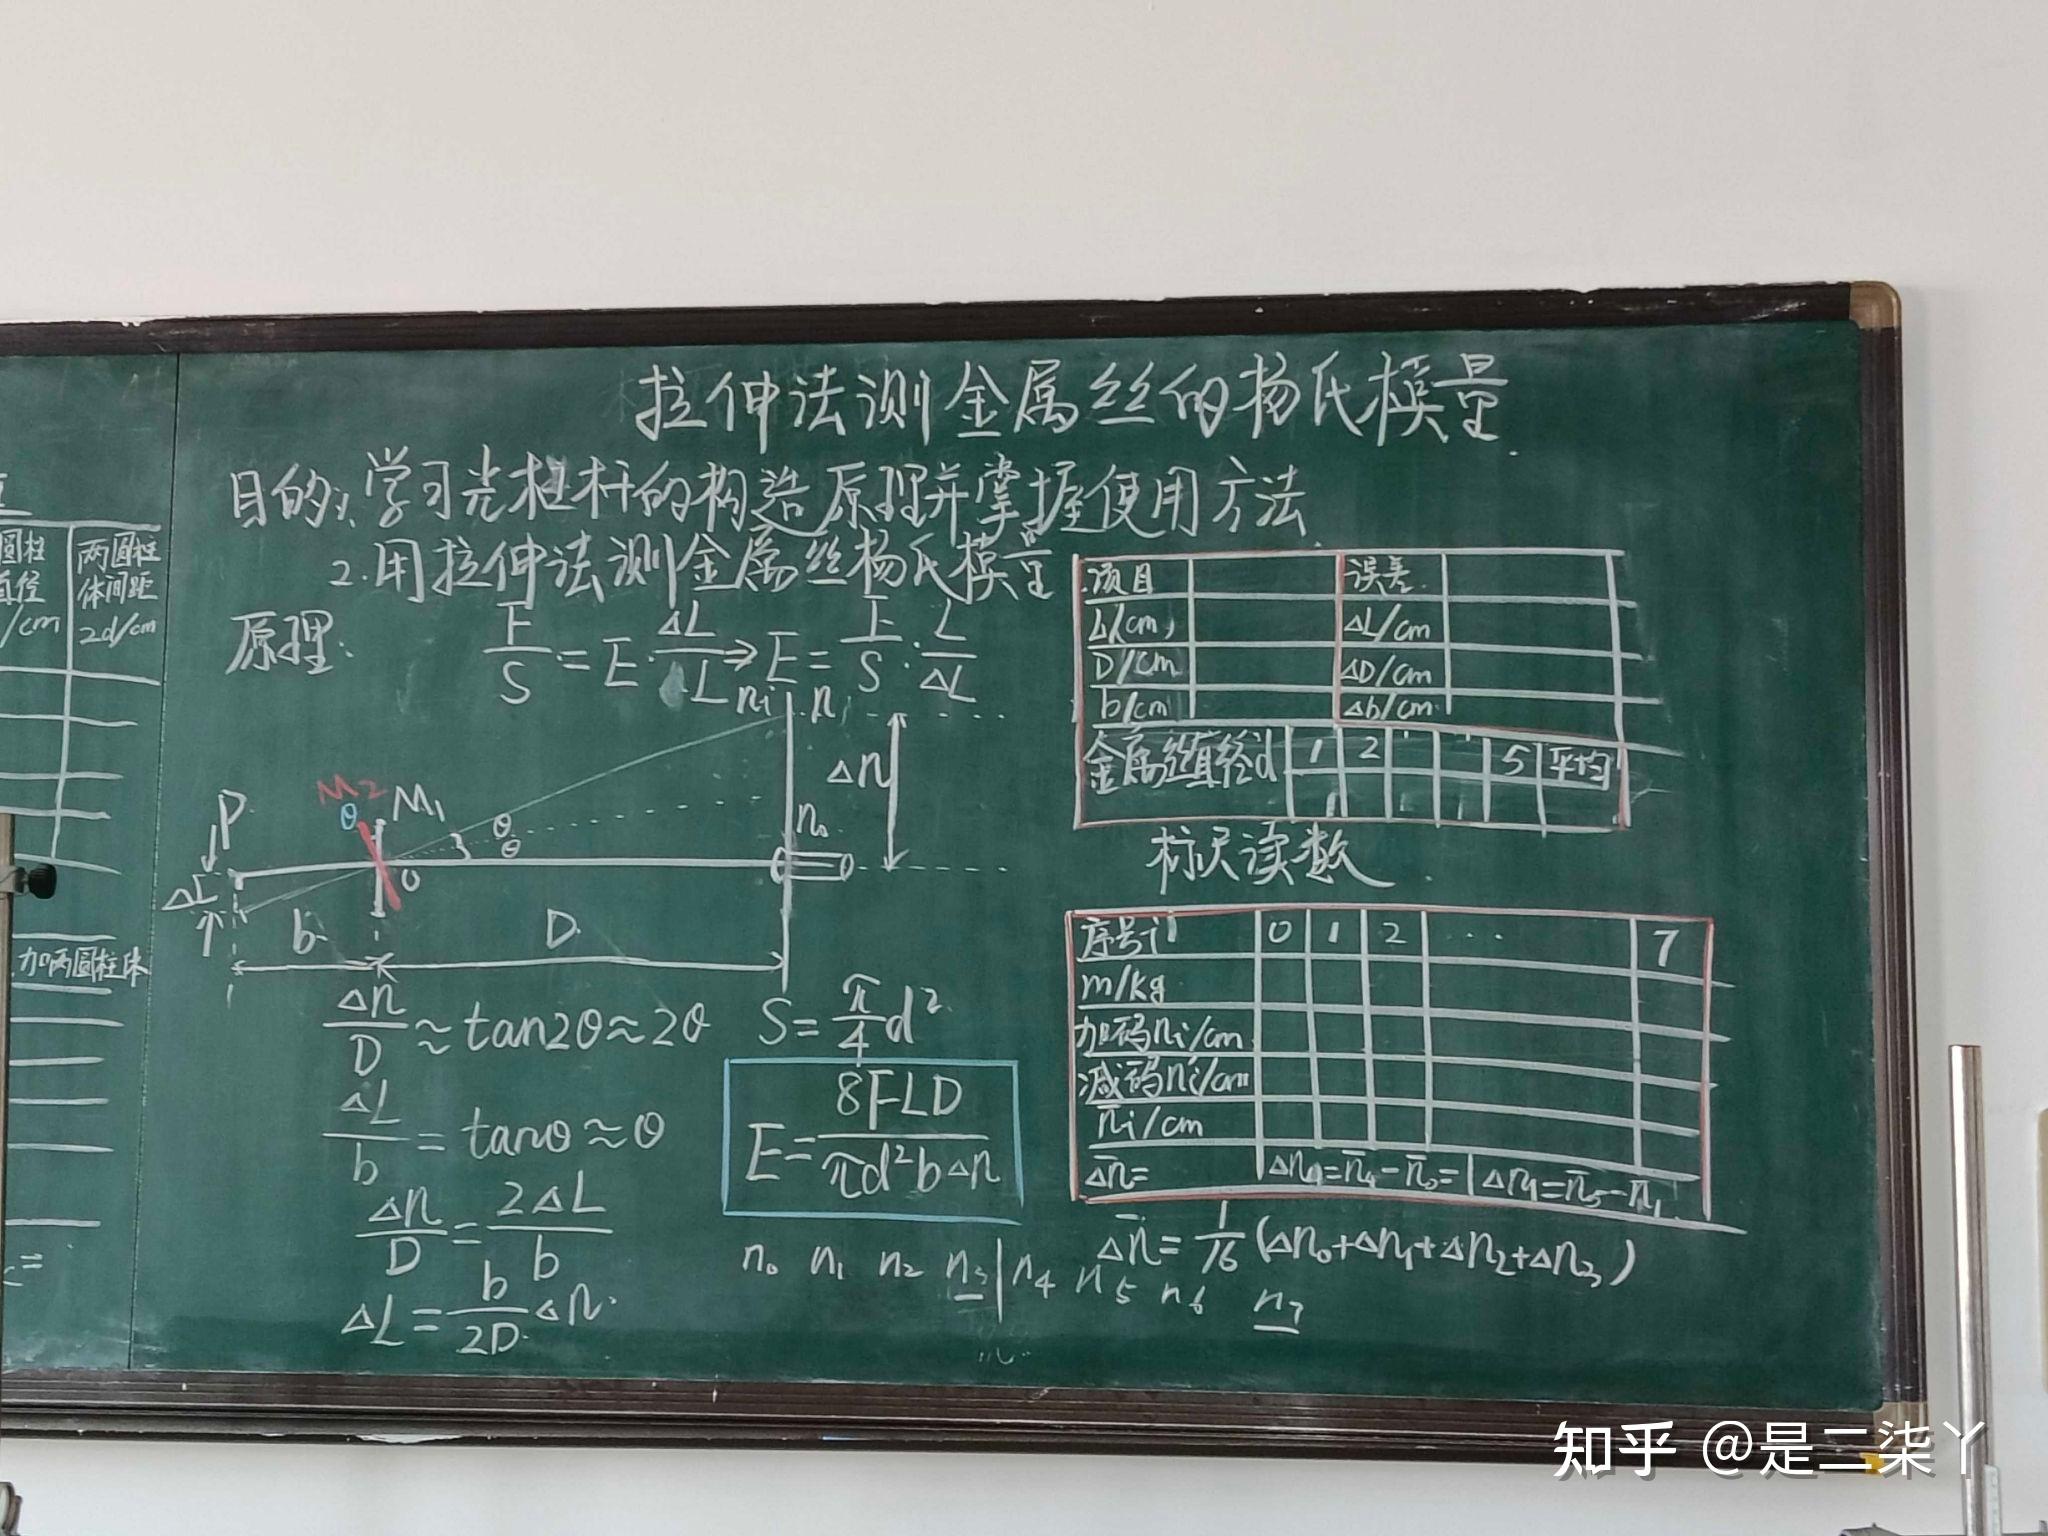 拉伸法测金属丝的杨氏模量
目的:1.学习光杠杆的构造原理并掌握使用方法
2.用拉伸法测金属丝杨氏模量
原理:
F/S = E·ΔL/L ⇒ E = F/S · L/ΔL
ni n
Δn
M2 M1
θ
P
θ
θ
n₀
O
ΔL
b D
Δn/D ≈ tan2θ ≈ 2θ
ΔL/b = tanθ ≈ θ
Δn/D = 2ΔL/b
ΔL = b/2D Δn
S = π/4 d²
E = 8FLD/πd²bΔn
n₀ n₁ n₂ n₃ | n₄ n₅ n₆ n₇
项目 误差
L/cm ΔL/cm
D/cm ΔD/cm
b/cm Δb/cm
金属丝直径d 1 2 5 平均
标尺读数
序号i 0 1 2 ... 7
m/kg
加码ni/cm
减码ni/cm
n̄i/cm
Δn̄= Δn₀=n̄₄-n̄₀= Δn₁=n̄₅-n̄₁
Δn̄ = 1/16 (Δn₀+Δn₁+Δn₂+Δn₃)
圆柱
直径
/cm
两圆柱
体间距
2d/cm
加两圆柱体
知乎 @是二柒丫